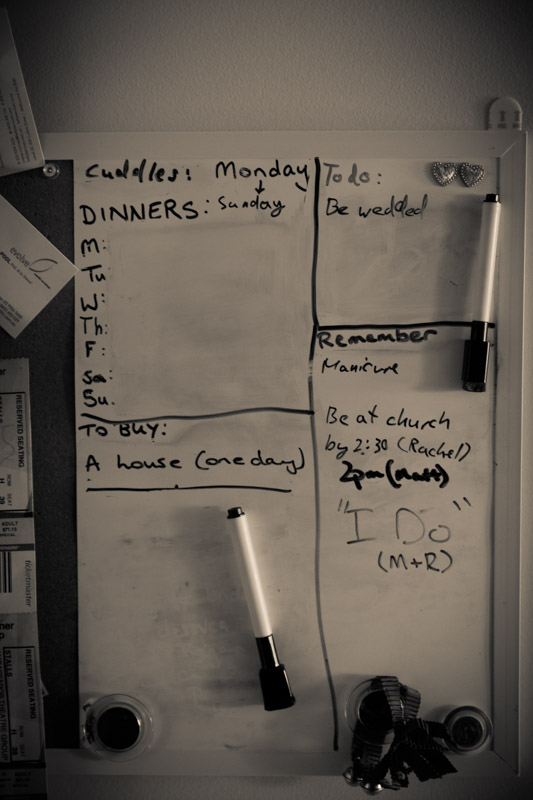 Cuddles: Monday
↓
DINNERS: Sunday
M:
Tu
W:
Th:
F:
Sa:
Su:
TO BUY:
A house (one day)
Todo:
Be wedded
Remember
Manicure
Be at church
by 2:30 (Rachel)
2pm (Matt)
"I Do"
(M+R)
evolve
RESERVED SEATING
ADULT
ticketmaster
RESERVED SEATING
STALLS